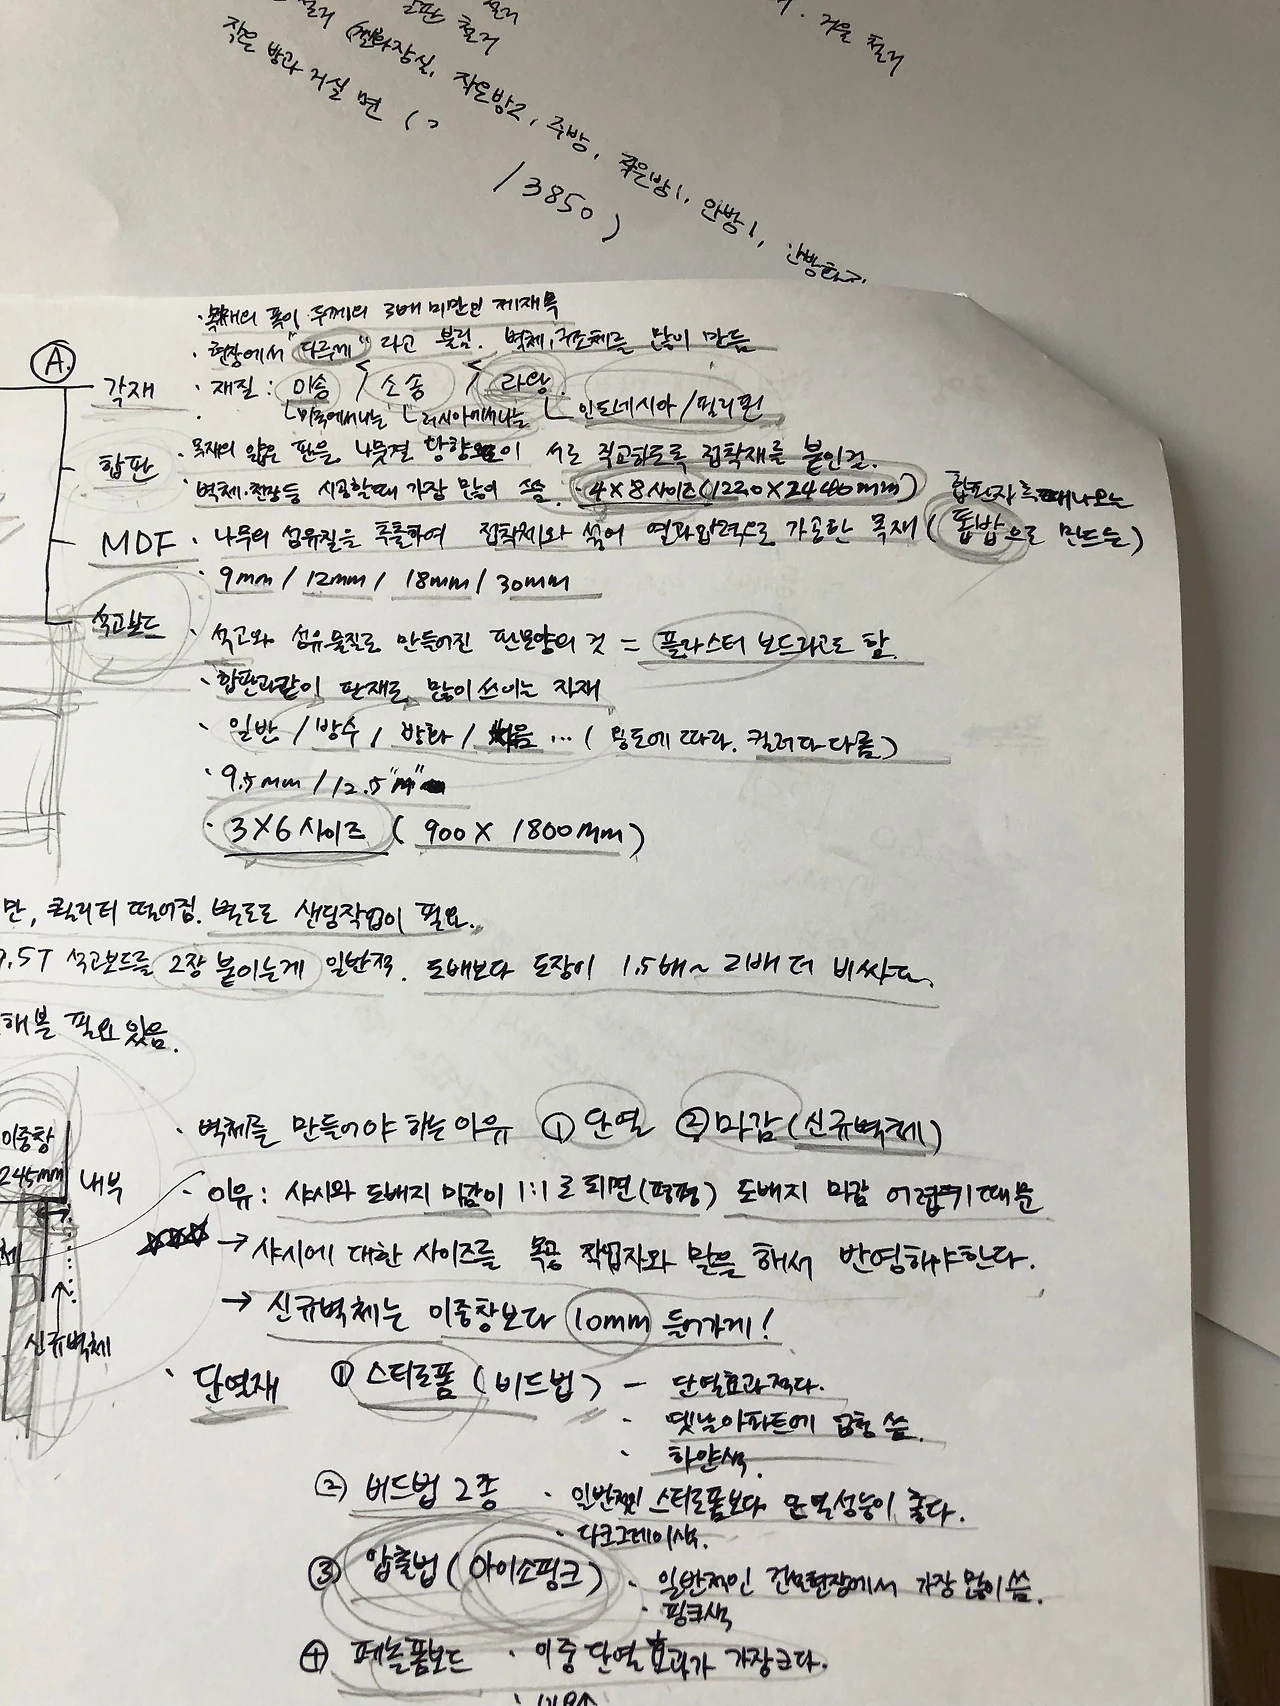 철거
철거
거울 철거
작은 방과 거실 면 (
작은방2, 주방, 작은방1, 안방1,
/3850)
· 목재의 폭이 두께의 3배 미만인 제재목
· 현장에서 "다루끼" 라고 불림. 벽체, 구조체를 많이 만듦
Ⓐ 각재 · 재질 : 미송 < 소송 < 라왕
미국에서나는 러시아에서나는 인도네시아/필리핀
합판 · 목재의 얇은 판을, 나뭇결 방향이 서로 직교하도록 접착재를 붙인걸.
· 벽체·천장등 시공할때 가장 많이 씀. · 4×8사이즈(1220×2440mm)
합판자를때나오는
MDF · 나무의 섬유질을 추출하여 접착제와 섞어 열과압력으로 가공한 목재 (톱밥으로 만드는)
· 9mm / 12mm / 18mm / 30mm
석고보드 · 석고와 섬유물질로 만들어진 판모양의 것 = 플라스터 보드라고도 함.
· 합판과같이 판재로 많이쓰이는 자재
· 일반 / 방수 / 방화 / 차음 ... ( 용도에 따라. 컬러다다름)
· 9.5mm / 12.5"m"
· 3×6사이즈 ( 900× 1800mm)
만, 퀄리티 떨어짐. 별도로 샌딩작업이 필요.
9.5T 석고보드를 2장 붙이는게 일반적. 도배보다 도장이 1.5배~ 2배 더 비싸다.
해볼 필요 있음.
· 벽체를 만들어야 하는이유 ① 단열 ② 마감(신규벽체)
이중창
245mm 내부
· 이유 : 샤시와 도배지 마감이 1:1로 되면(평평) 도배지 마감 어렵기때문
☆☆☆ → 샤시에 대한 사이즈를 목공 작업자와 말을 해서 반영해야한다.
→ 신규벽체는 이중창보다 10mm 들어가게!
신규벽체
· 단열재 ① 스티로폼 (비드법) - 단열효과적다.
· 옛날아파트에 씀.
· 하얀색.
② 비드법 2종 · 일반적인 스티로폼보다 단열성능이 좋다.
· 다크그레이색.
③ 압출법 (아이소핑크) · 일반적인 건설현장에서 가장 많이 씀.
· 핑크색
④ 페놀폼보드 · 이중 단열효과가 가장크다.